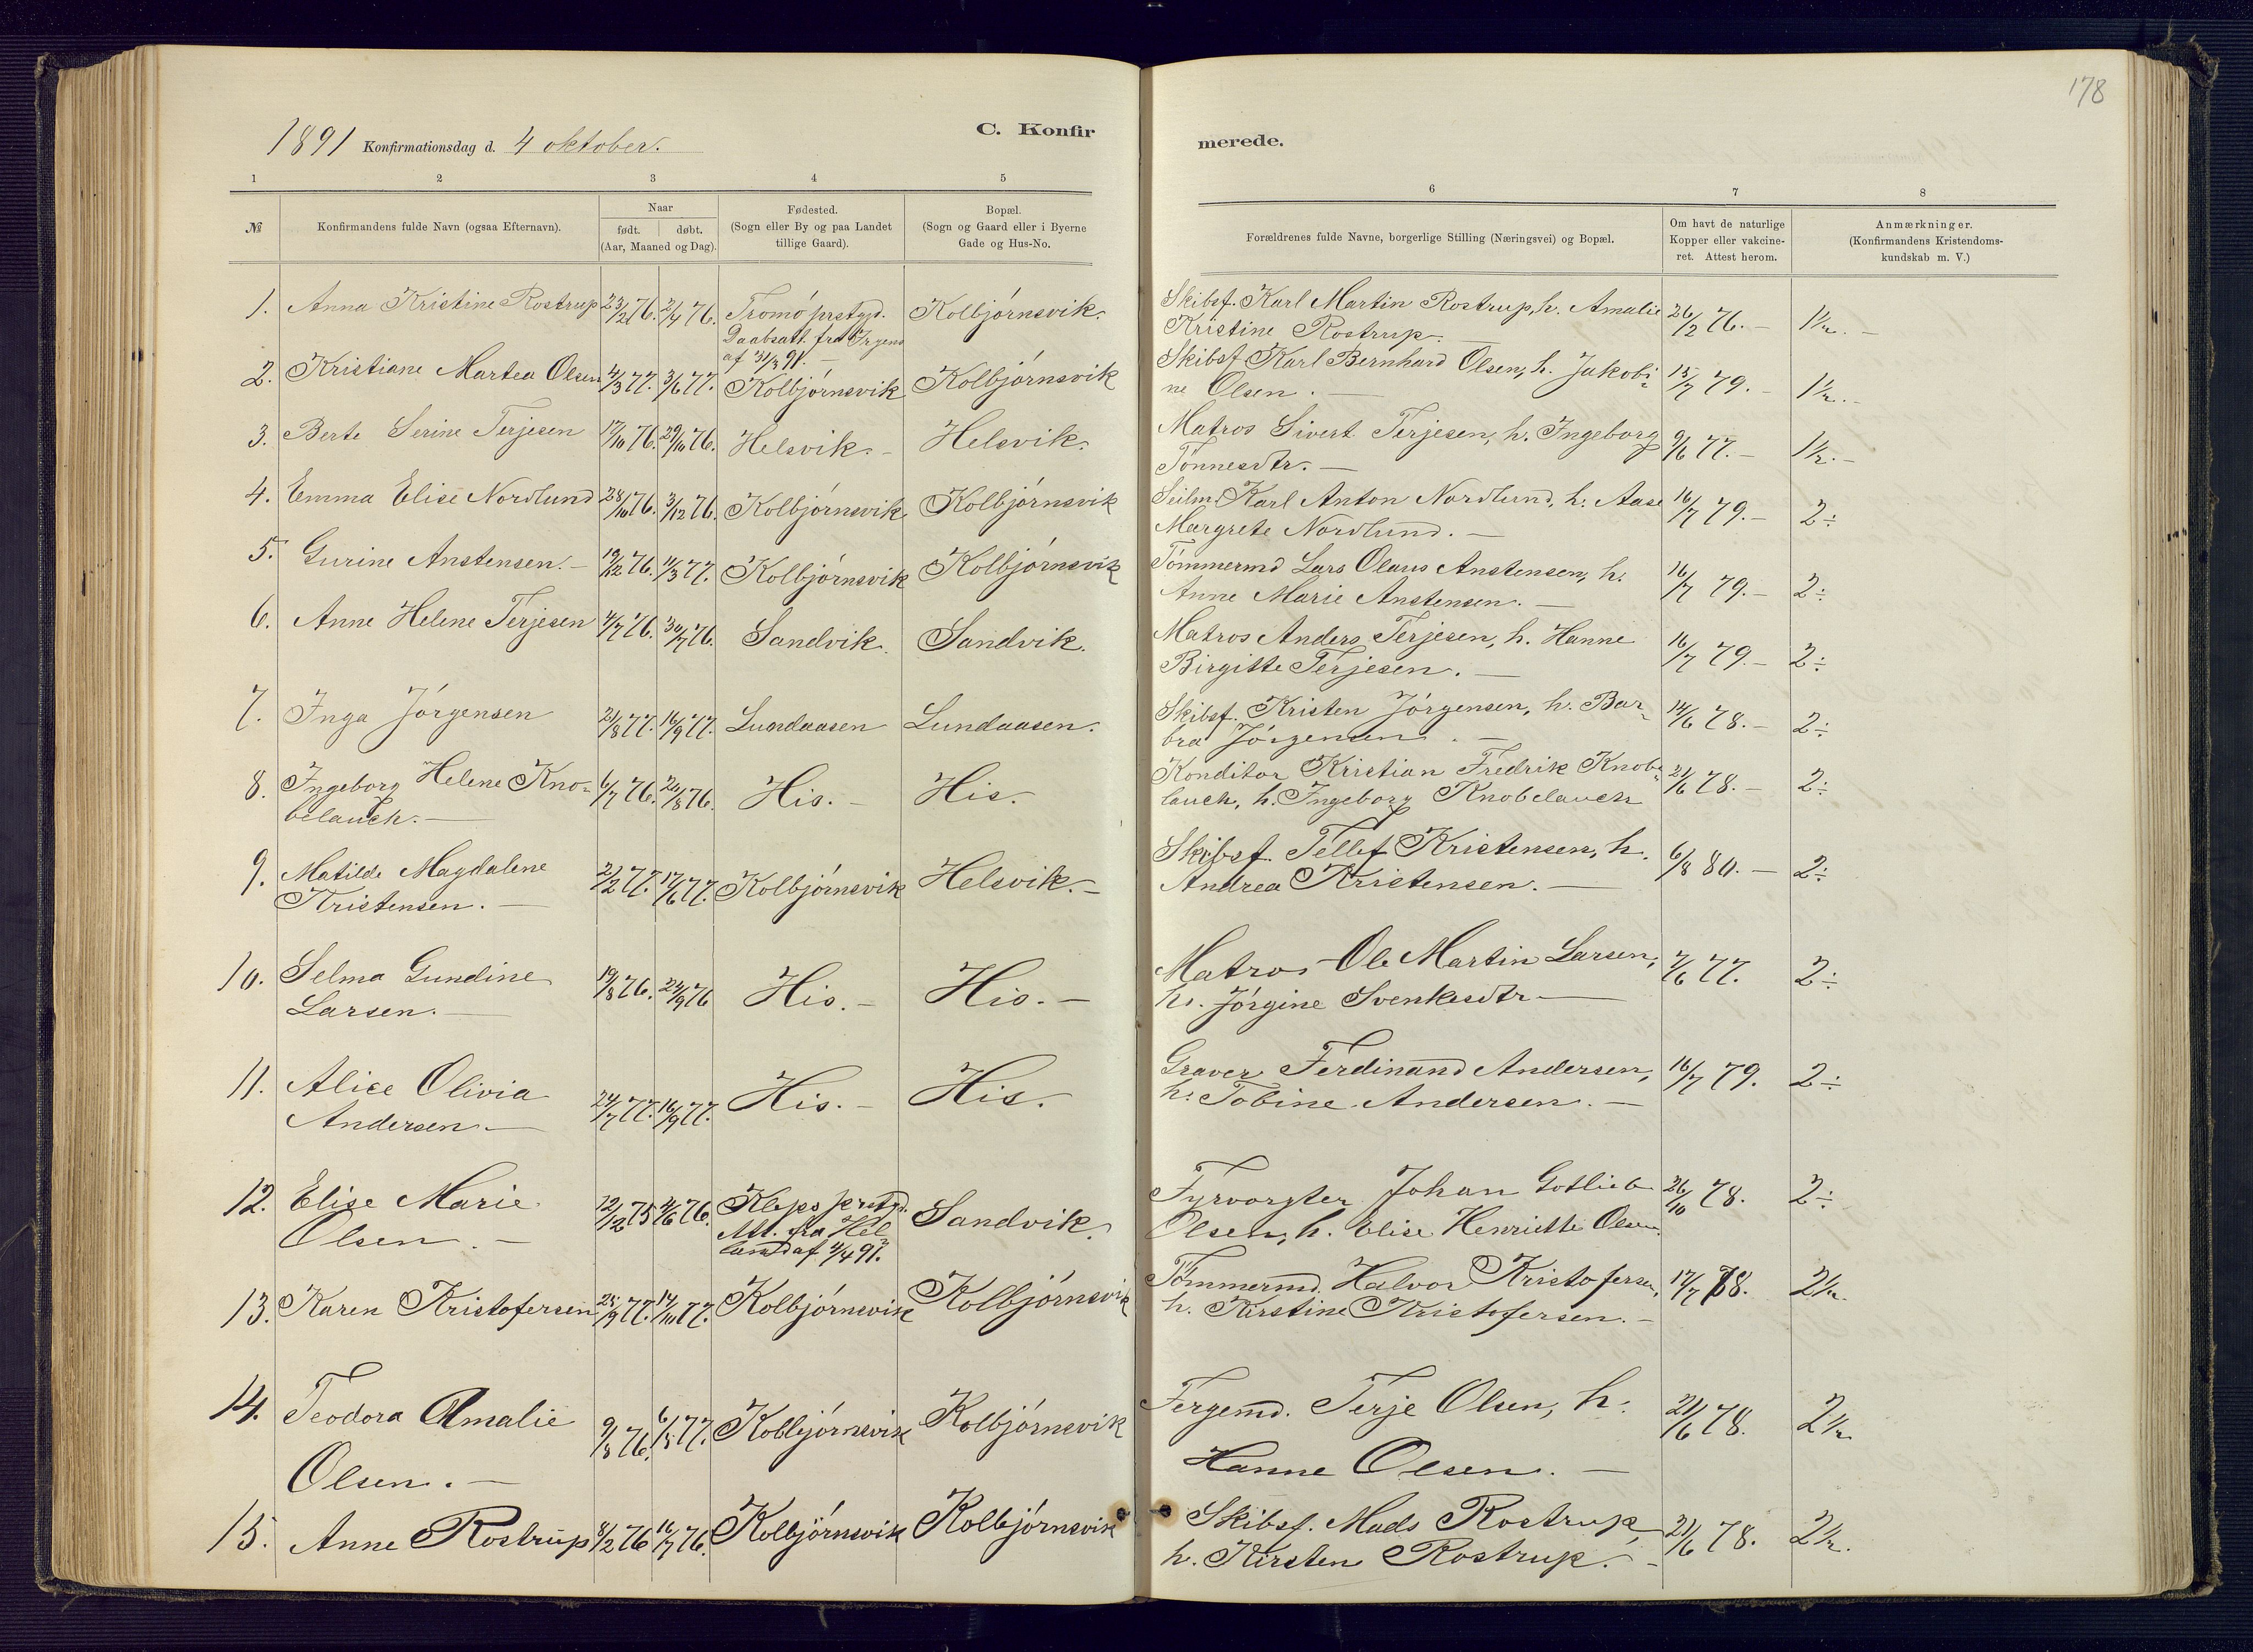 178
C. Konfirmerede.
1891 Konfirmationsdag d. 4 oktober.
1 2 3 4 5 6 7 8
№ Konfirmandens fulde Navn (ogsaa Efternavn). Naar født. døbt. (Aar, Maaned og Dag). Fødested. (Sogn eller By og paa Landet tillige Gaard). Bopæl. (Sogn og Gaard eller i Byerne Gade og Hus-No. Forældrenes fulde Navne, borgerlige Stilling (Næringsvei) og Bopæl. Om havt de naturlige Kopper eller vakcineret. Attest herom. Anmærkninger. (Konfirmandens Kristendomskundskab m. V.)
1. Anna Kristine Rostrup 23/2 76. 2/4 76. Tromö prstgjd. Kolbjörnsvik. Skibsf. Karl Martin Rostrup, h. Amalie 26/2 76. – 1½. –
Daabsatt. fra Kristine Rostrup. –
af 31/3 91. –
2. Kristiane Martea Olsen 4/3 77. 3/6 77. Kolbjörnsvik Kolbjörnsvik Skibsf. Karl Bernhard Olsen, h. Jakobi- 15/7 79. – 1½. –
ne Olsen. –
3. Berte Serine Terjesen 17/10 76. 29/10 76. Helsvik. – Helsvik. Matros Sivert Terjesen, h. Ingeborg 9/6 77. – 1½. –
Tönnesdtr. –
4. Emma Elise Nordlund 28/10 76. 3/12 76. Kolbjörnsvik Kolbjörnsvik Seilmd Karl Anton Nordlund, h. Aase 16/7 79. – 2÷
Margrete Nordlund. –
5. Gurine Anstensen. – 19/12 76. 11/3 77. Kolbjörnsvik Kolbjörnsvik Tömmermd Lars Olaus Anstensen, h. 16/7 79. – 2÷
Anne Marie Anstensen. –
6. Anne Helene Terjesen 4/7 76. 30/7 76. Sandvik. Sandvik. Matros Anders Terjesen, h. Hanne 16/7 79. – 2÷
Birgitte Terjesen. –
7. Inga Jörgensen 21/8 77. 16/9 77. Lundaasen Lundaasen. Skibsf. Kristen Jörgensen, h. Bar- 14/6 78. – 2÷
bra Jörgensen. –
8. Ingeborg Helene Kno- 6/7 76. 20/8 76. His. – His. Konditor Kristian Fredrik Knobe- 21/6 78. – 2÷
belauch. – lauch, h. Ingeborg Knobelauch
9. Matilde Magdalene 2/2 77. 17/6 77. Kolbjörnsvik Helsvik. – Skibsf. Tellef Kristensen, h. 6/8 80. – 2÷
Kristensen. – Andrea Kristensen. –
10. Selma Gundine 19/8 76. 24/9 76 His. – His. – Matros Ole Martin Larsen, 7/6 77. 2÷
Larsen. – h. Jörgine Svenkesdtr –
11. Alice Olivia 24/7 77. 16/9 77. His. – His. Graver Ferdinand Andersen, 16/7 79. 2÷
Andersen – h. Tobine Andersen. –
12. Elise Marie 12/12 75 4/6 76. Kleps prstgj. Sandvik. Fyrvorgter Johan Gotlieb 26/10 78. 2÷
Olsen. – Att. fra Hel- Olsen, h. Elise Henriette Olsen.
land af 4/4 91.
13. Karen Kristofersen 25/9 77. 14/10 77. Kolbjörnsvik Kolbjörnsvik Tömmermd. Halvor Kristofersen, 17/7 78. 2½.
h. Kirstine Kristofersen. –
14. Teodora Amalie 9/8 76. 77. Kolbjörnsvik Kolbjörnsvik Fergemd. Terje Olsen, h. 21/6 78. 2½
Olsen. – Hanne Olsen. –
15. Anne Rostrup 8/2 76 16/7 76. Kolbjörnsvik Kolbjörnsvik Skibsf. Mads Rostrup, 21/6 78. 2½.
h. Kirsten Rostrup. –